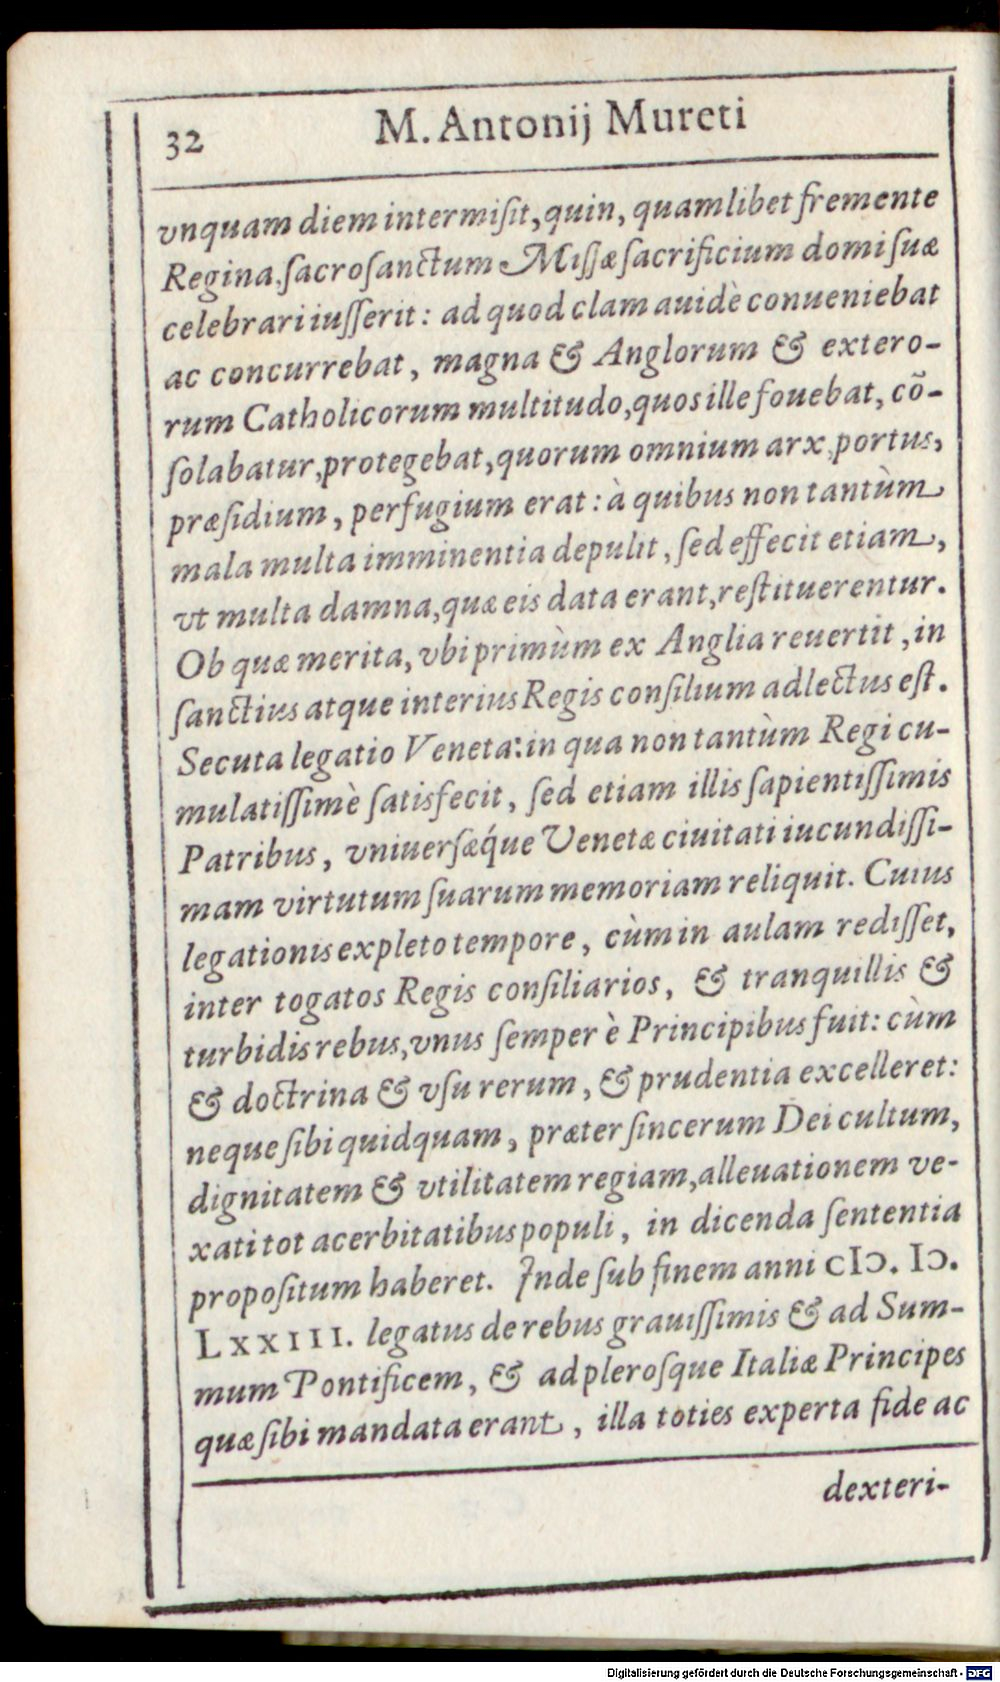 32 M. Antonij Mureti
vnquam diem intermiſit, quin, quamlibet fremente
Regina, ſacroſanctum Miſſæ ſacrificium domi ſuæ
celebrari iuſſerit: ad quod clam auidè conueniebat
ac concurrebat, magna & Anglorum & extero-
rum Catholicorum multitudo, quos ille fouebat, cõ-
ſolabatur, protegebat, quorum omnium arx, portus,
præſidium, perfugium erat: à quibus non tantùm
mala multa imminentia depulit, ſed effecit etiam,
vt multa damna, quæ eis data erant, reſtituerentur.
Ob quæ merita, vbi primùm ex Anglia reuertit, in
ſanctius atque interius Regis conſilium adlectus eſt.
Secuta legatio Veneta: in qua non tantùm Regi cu-
mulatiſſimè ſatisfecit, ſed etiam illis ſapientiſſimis
Patribus, vniuerſæq́ue Venetæ ciuitati iucundiſſi-
mam virtutum ſuarum memoriam reliquit. Cuius
legationis expleto tempore, cùm in aulam rediſſet,
inter togatos Regis conſiliarios, & tranquillis &
turbidis rebus, vnus ſemper è Principibus fuit: cùm
& doctrina & vſu rerum, & prudentia excelleret:
neque ſibi quidquam, præter ſincerum Dei cultum,
dignitatem & vtilitatem regiam, alleuationem ve-
xati tot acerbitatibus populi, in dicenda ſententia
propoſitum haberet. Inde ſub finem anni cIↄ. Iↄ.
LXXIII. legatus de rebus grauiſſimis & ad Sum-
mum Pontificem, & ad pleroſque Italiæ Principes
quæ ſibi mandata erant, illa toties experta fide ac
dexteri-
Digitalisierung gefördert durch die Deutsche Forschungsgemeinschaft - DFG